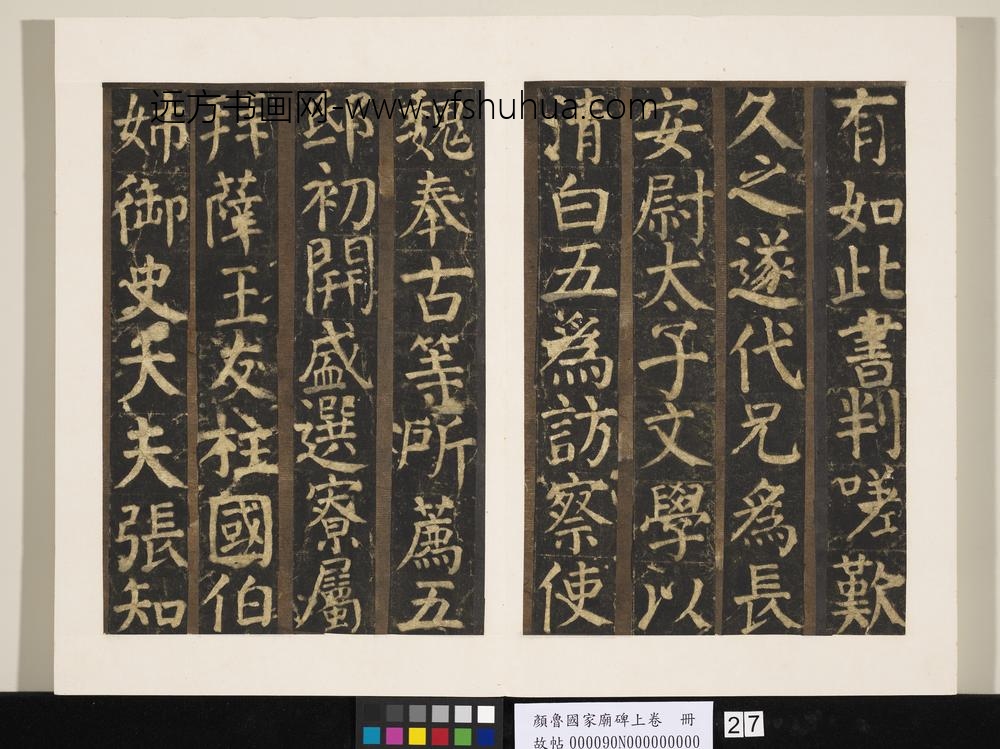 远方书画网-www.yfshuhua.com
有如此書判嗟歎
久之遂代兄爲長
安尉太子文學以
清白五爲訪察使
魏奉古等所薦五
邸初開盛選寮屬
拜薩王友柱國伯
姊御史大夫張知
顏魯國家廟碑上卷 冊
故帖000090N000000000
27